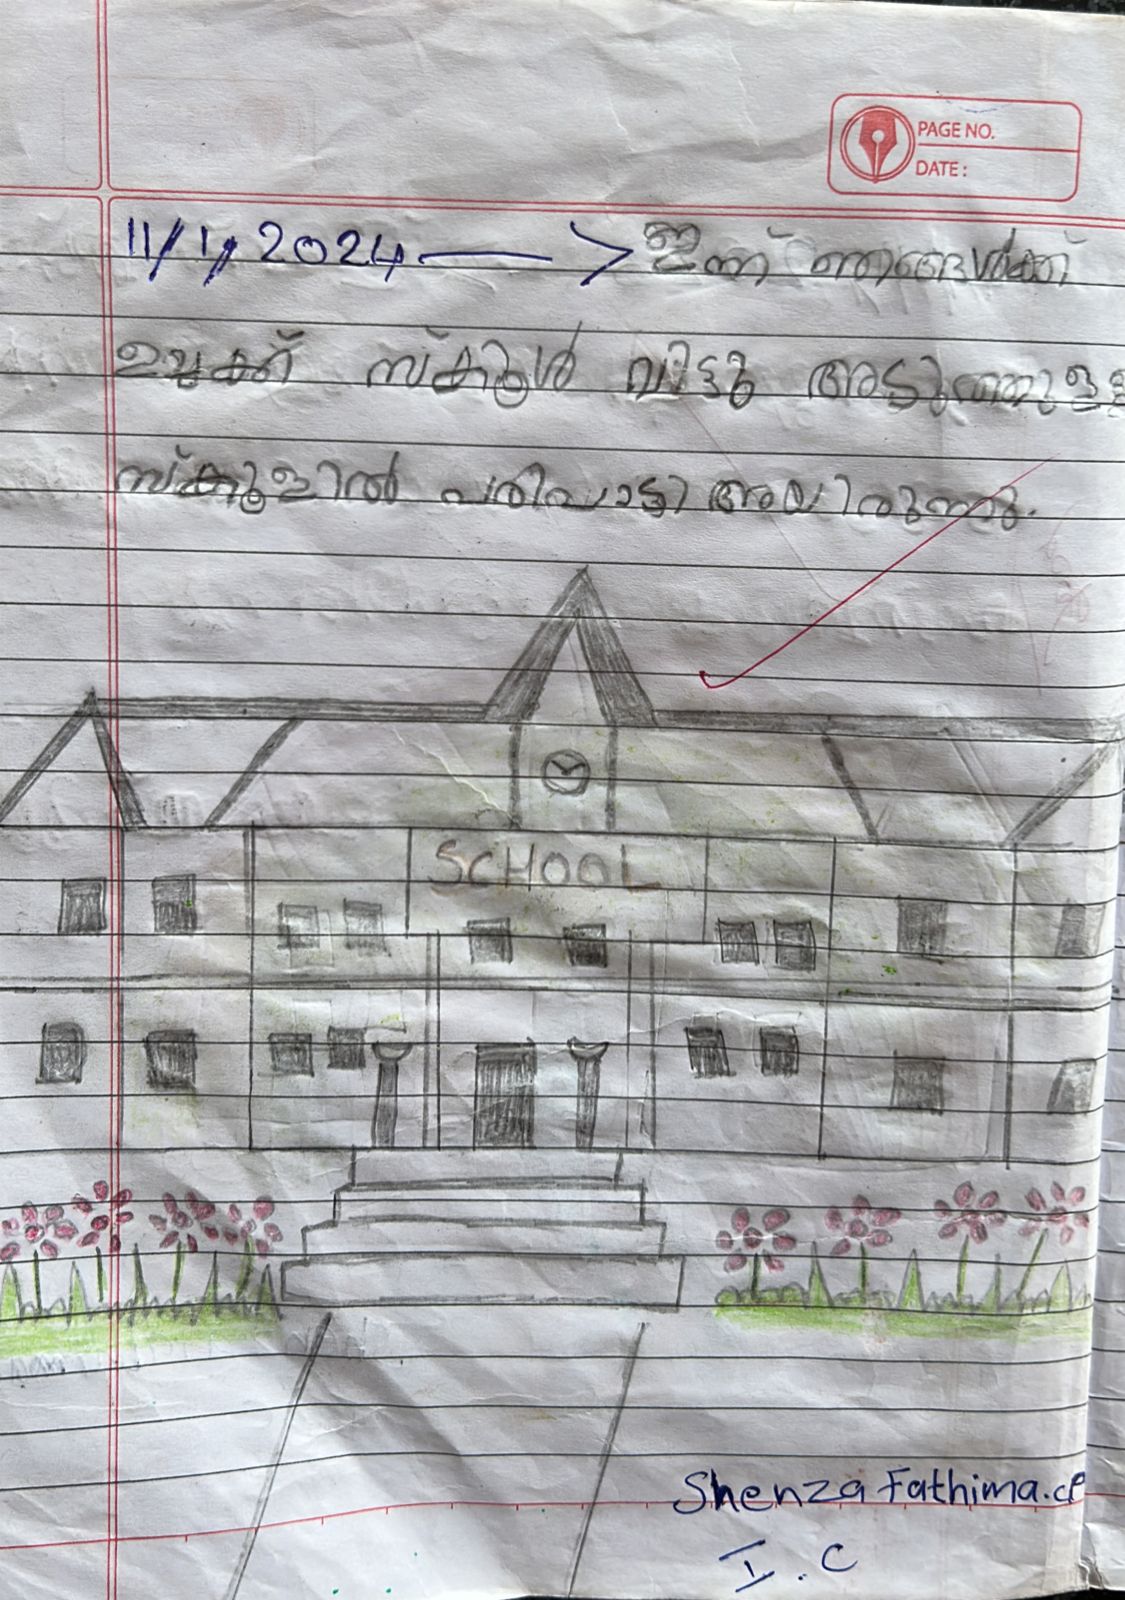 PAGE NO.
DATE:
11/1/2024 —> ഇന്ന് ഞങ്ങൾക്ക്
ഉച്ചക്ക് സ്കൂൾ വിട്ടു അടുത്തുള്ള
സ്കൂളിൽ പരിപാട്ടി അയിരുന്നു.
SCHOOL
Shenza Fathima.cp
I.C